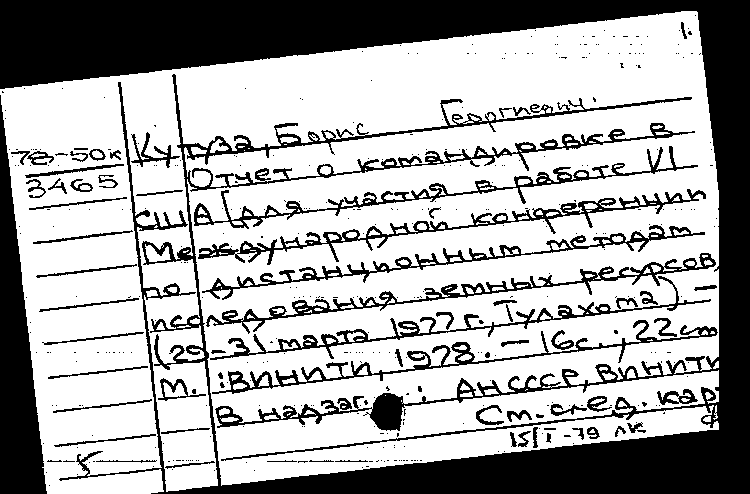 1.
Кутуза, Борис Георгиевич.
78-50к
3465
Отчет о командировке в
США [для участия в работе VI
Международной конференции
по дистанционным методам
исследования земных ресурсов,
(29-31 марта 1977 г., Тулахома). -
М. : ВИНИТИ, 1978. - 16с. ; 22см
В надзаг. : АНСССР, ВИНИТИ
См. след. кар
15/I-79 лк
5